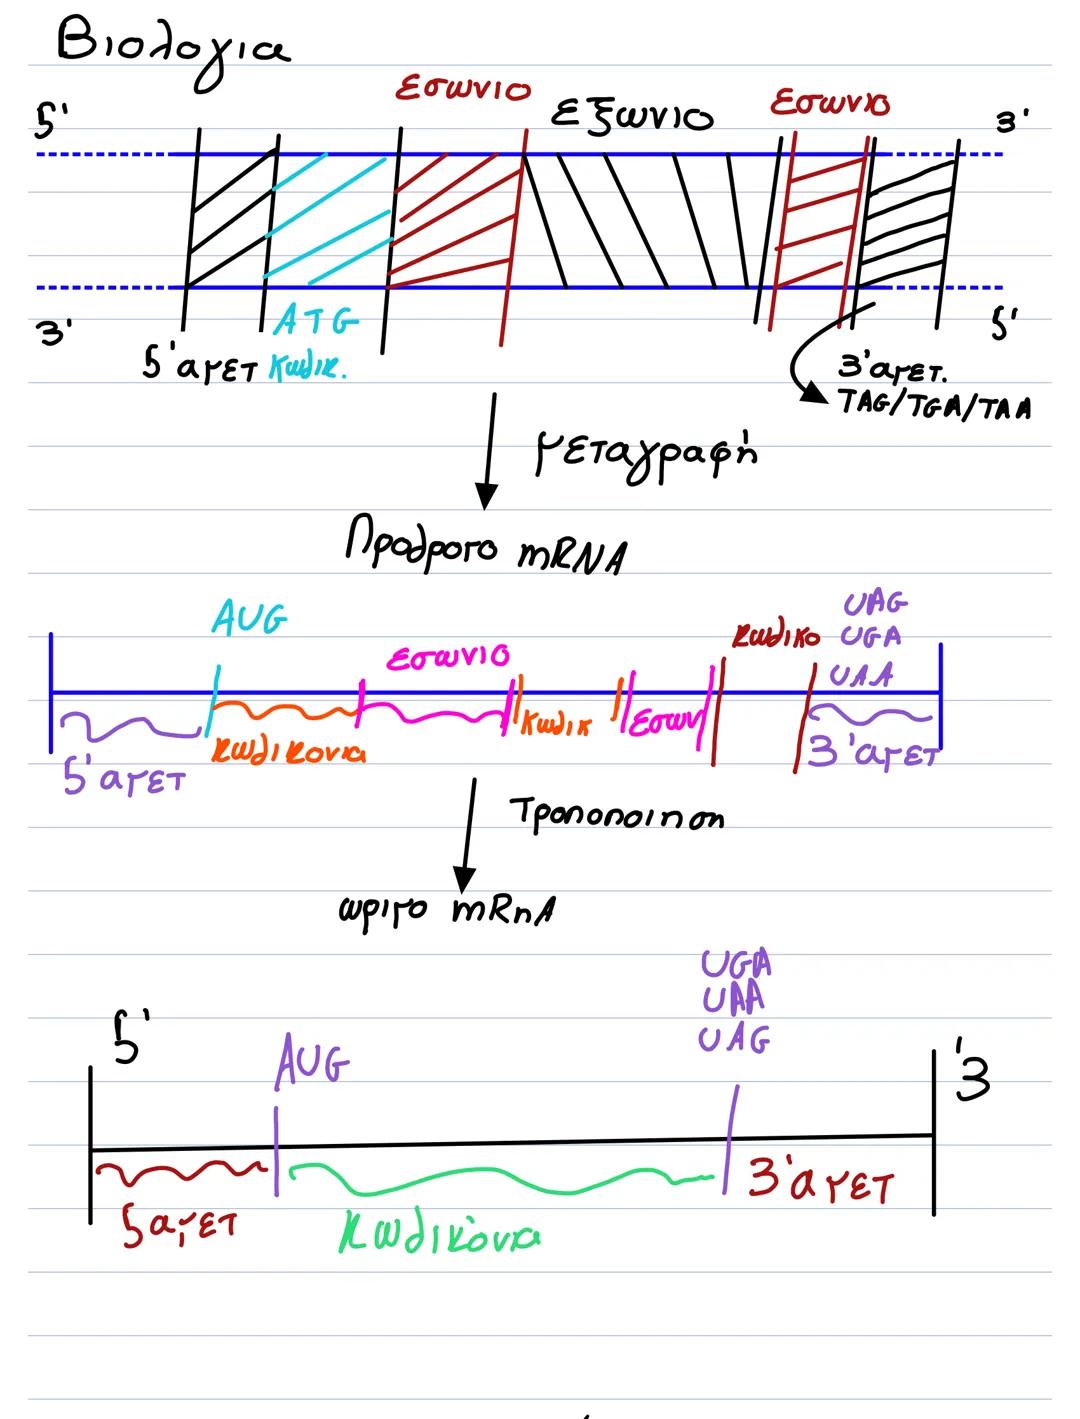 Βιολογια
5' εσωνιο εξωνιο εσωνιο 3'
3' ATG 5'
5'αμετ κωδικ. 3'αμετ.
TAG/TGA/TAA
μεταγραφή
Προδρομο mRNA
AUG UAG
εσωνιο κωδικο UGA
UAA
κωδικ εσων
5'αμετ κωδικονια 3'αμετ
Τροποποιηση
ωριμο mRnA
UGA
UAA
5' AUG UAG '3
5αμετ κωδικόνια 3'αμετ